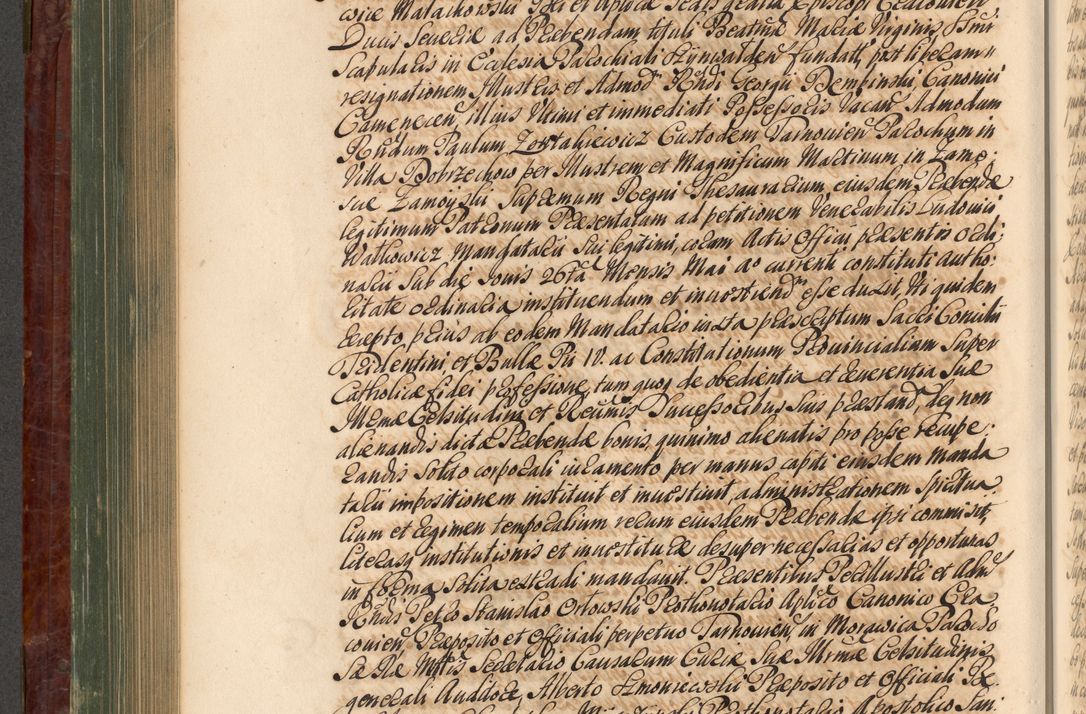 cwice Małachowski Dei et Aplicæ Sedis gratia Episcopi Cracovien
Ducis Severiæ ad Præbendam tituli Beatissæ Mariæ Virginis Ssmi
Scapularis in Ecclesia Parochiali fundatt, post liberam
resignationem Illustris et Admod Rndi Georgii Dembinski, Canonici
Camenecen, illius Ultimi et immediati Possessoris Vacan, Admodum
Rndum Paulum Custodem Tarnovien Parochum in
Villa Dobrzechow per Illustrem et Magnificum Martinum in Zamo:
scie Zamoyski Supremum Regni Thesaurarium, eiusdem Præbendæ
legitimum Patronum Præsentatum ad petitionem Venerabilis Ludovici
Watkowicz Mandatarii sui legitimi, coram Actis Officii præsentis ordi:
narii Sub die Jovis 26ta Mensis Mai ao currenti constituti autho:
ritate ordinaria instituendum et investiend esse duxit, Uti quidem
recepto prius ab eodem Mandatario iuxta præscriptum Sacri Concilii
Tridentini, et Bullæ Pii IV. ac Constitutionum Provincialium Super
Catholicæ fidei professione, tum quoq de obedientia et reverentia Suæ
Illmæ Celsitudini et Reumis Successoribus Suis præstand, deq non
alienandis dictæ Præbendæ bonis, quinimo alienatis pro posse recupe:
randis Solito corporali iuramento, per manus capiti eiusdem Manda
tarii impositionem instituit et investivit, administrationem Spiritua
lium et regimen temporalium rerum eiusdem Præbendæ ipsi commisit,
literasq institutionis et investituræ desuper necessarias et opportunas
in forma Solita extradi mandavit. Præsentibus Perillustri et Adm
Rndis Petro Stanislao Orłowski Prothonotario Aplico Canonico Cra
covien, Præposito et Officiali perpetuo Tarnovien, in Morawica Parocho
Sacræ Secretario Causarum Curiæ Suæ Illrmæ Celsitudinis
generali Auditore, Alberto Præposito et Officiali
Prothonotario Apostolico